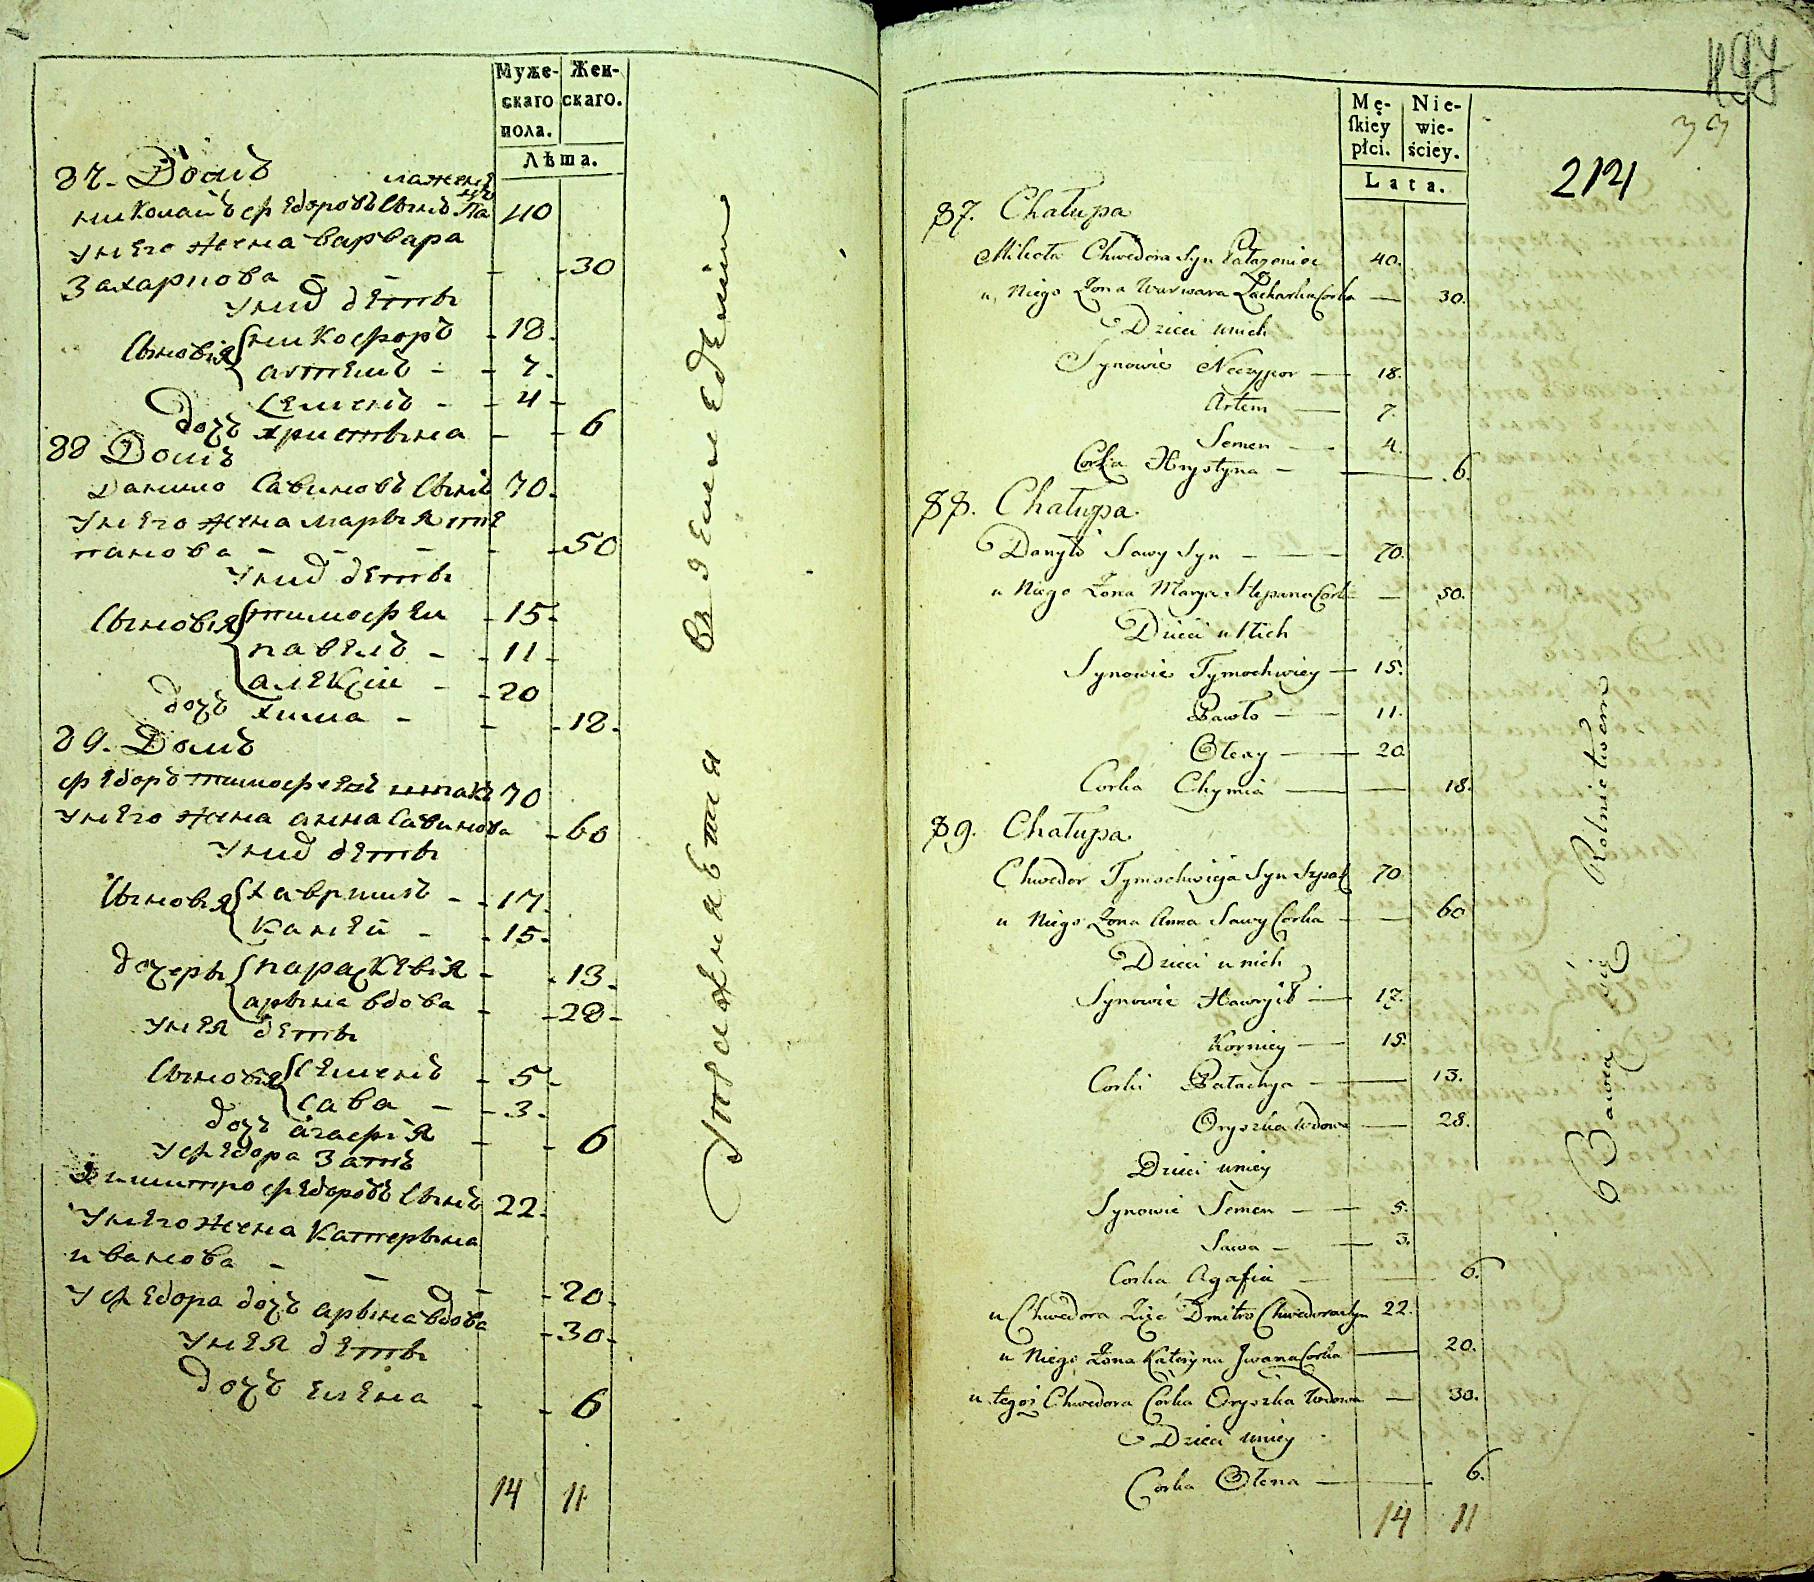 Муже-
скаго
пола.
Жен-
скаго.
Лѣта.
87. Домъ
Николай Федоровъ Сынъ Па
лаженя
40
у него жена варвара
Захарпова - - - 30
у них дети
Сыновія Никофоръ - 18.
артемъ - - 7.
Семенъ - - 4 -
дочъ христына - - 6
88 Домъ
Данило Савиновъ Сынъ 70.
у него жена марья сте
панова - - - - 50
у них дети
Сыновія тимофеи - 15 -
павелъ - - 11 -
алексіи - - 20
дочъ Химиа - - - 18 -
89. Домъ
федоръ тимофеевъ шпакъ 70
у него жена анна Савинова - 60
у них дети
Сыновія гаврилъ - - 17.
Карней - - 15 -
дочеры параскевія - - 13 -
арына вдова - - 28 -
у нея дети
Сыновія Семенъ - 5 -
Сава - - 3 -
дочъ агафія - - 6
у федора затъ
Димитро федоровъ Сынъ 22.
у него жена Катерына
ивановa - - - - 20 -
у федора дочъ арына вдова - 30 -
у нея дети
дочъ елена - - 6
14 11
Упражняется въ земледеліи
Mę-
ſkiey
płci.
Nie-
wie-
ściey.
Lata.
33
214
87. Chałupa
Mikoła Chwedora Syn Pałazenioc 40.
u Niego Żona Warwara Zacharka Corka — 30.
Dzieci unich
Synowie Neczypor — 18.
Artem — 7.
Semen — 4.
Corka Hrystyna — — 6.
88. Chałupa
Danyło Sawy Syn - — — 70.
u Niego Żona Marya Stepana Cork — 50.
Dzieci u Nich
Synowie Tymochwiey — 15.
Pawło — — 11.
Ołexy — — 20
Corka Chymia — — 18.
89. Chałupa
Chwedor Tymochwieja Syn Szpak 70.
u Niego Żona Anna Sawy Corka - — 60
Dzieci u nich
Synowie Hawryło — 17.
Korniey — 15.
Corki Pałachya - — 13.
Oryszka Wdowa — 28.
Dzieci uniey
Synowie Semen — — 5.
Sawa - — 3.
Corka Agafia — — 6.
u Chwedora Zięć Dmitro Chwedora Syn 22.
u Niego Żona Kateryna Jwana Corka — 20.
u tegoż Chwedora Córka Oryszka Wdowa — 30.
Dzieci uniey
Corka Ołena — — 6.
14 11
Bawią się Rolnictwem